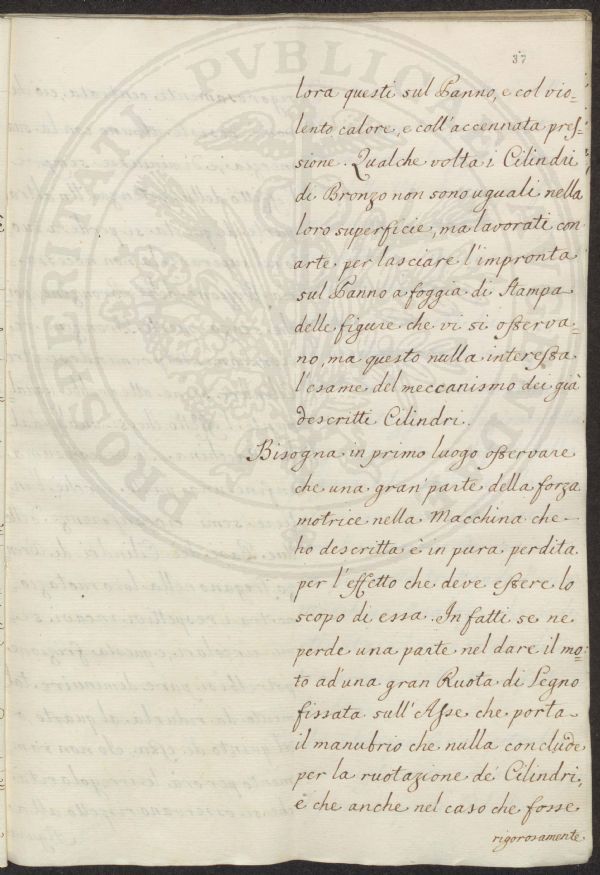 37
lora questi sul Panno, e col vio=
lento calore, e coll'accennata pres=
sione. Qualche volta i Cilindri
di Bronzo non sono uguali nella
loro superficie, ma lavorati con
arte per lasciare l'impronta
sul Panno a foggia di Stampa
delle figure che vi si osserva=
no, ma questo nulla interessa
l'esame del meccanismo dei già
descritti Cilindri.
Bisogna in primo luogo osservare
che una gran' parte della forza
motrice nella Macchina che
ho descritta è in pura perdita
per l'effetto che deve essere lo
scopo di essa. In fatti se ne
perde una parte nel dare il mo=
to ad'una gran Ruota di Legno
fissata sull'Asse che porta
il manubrio che nulla conclude
per la ruotazione de' Cilindri,
e che anche nel caso che fosse
rigorosamente
PROSPERITATI PVBLICAE